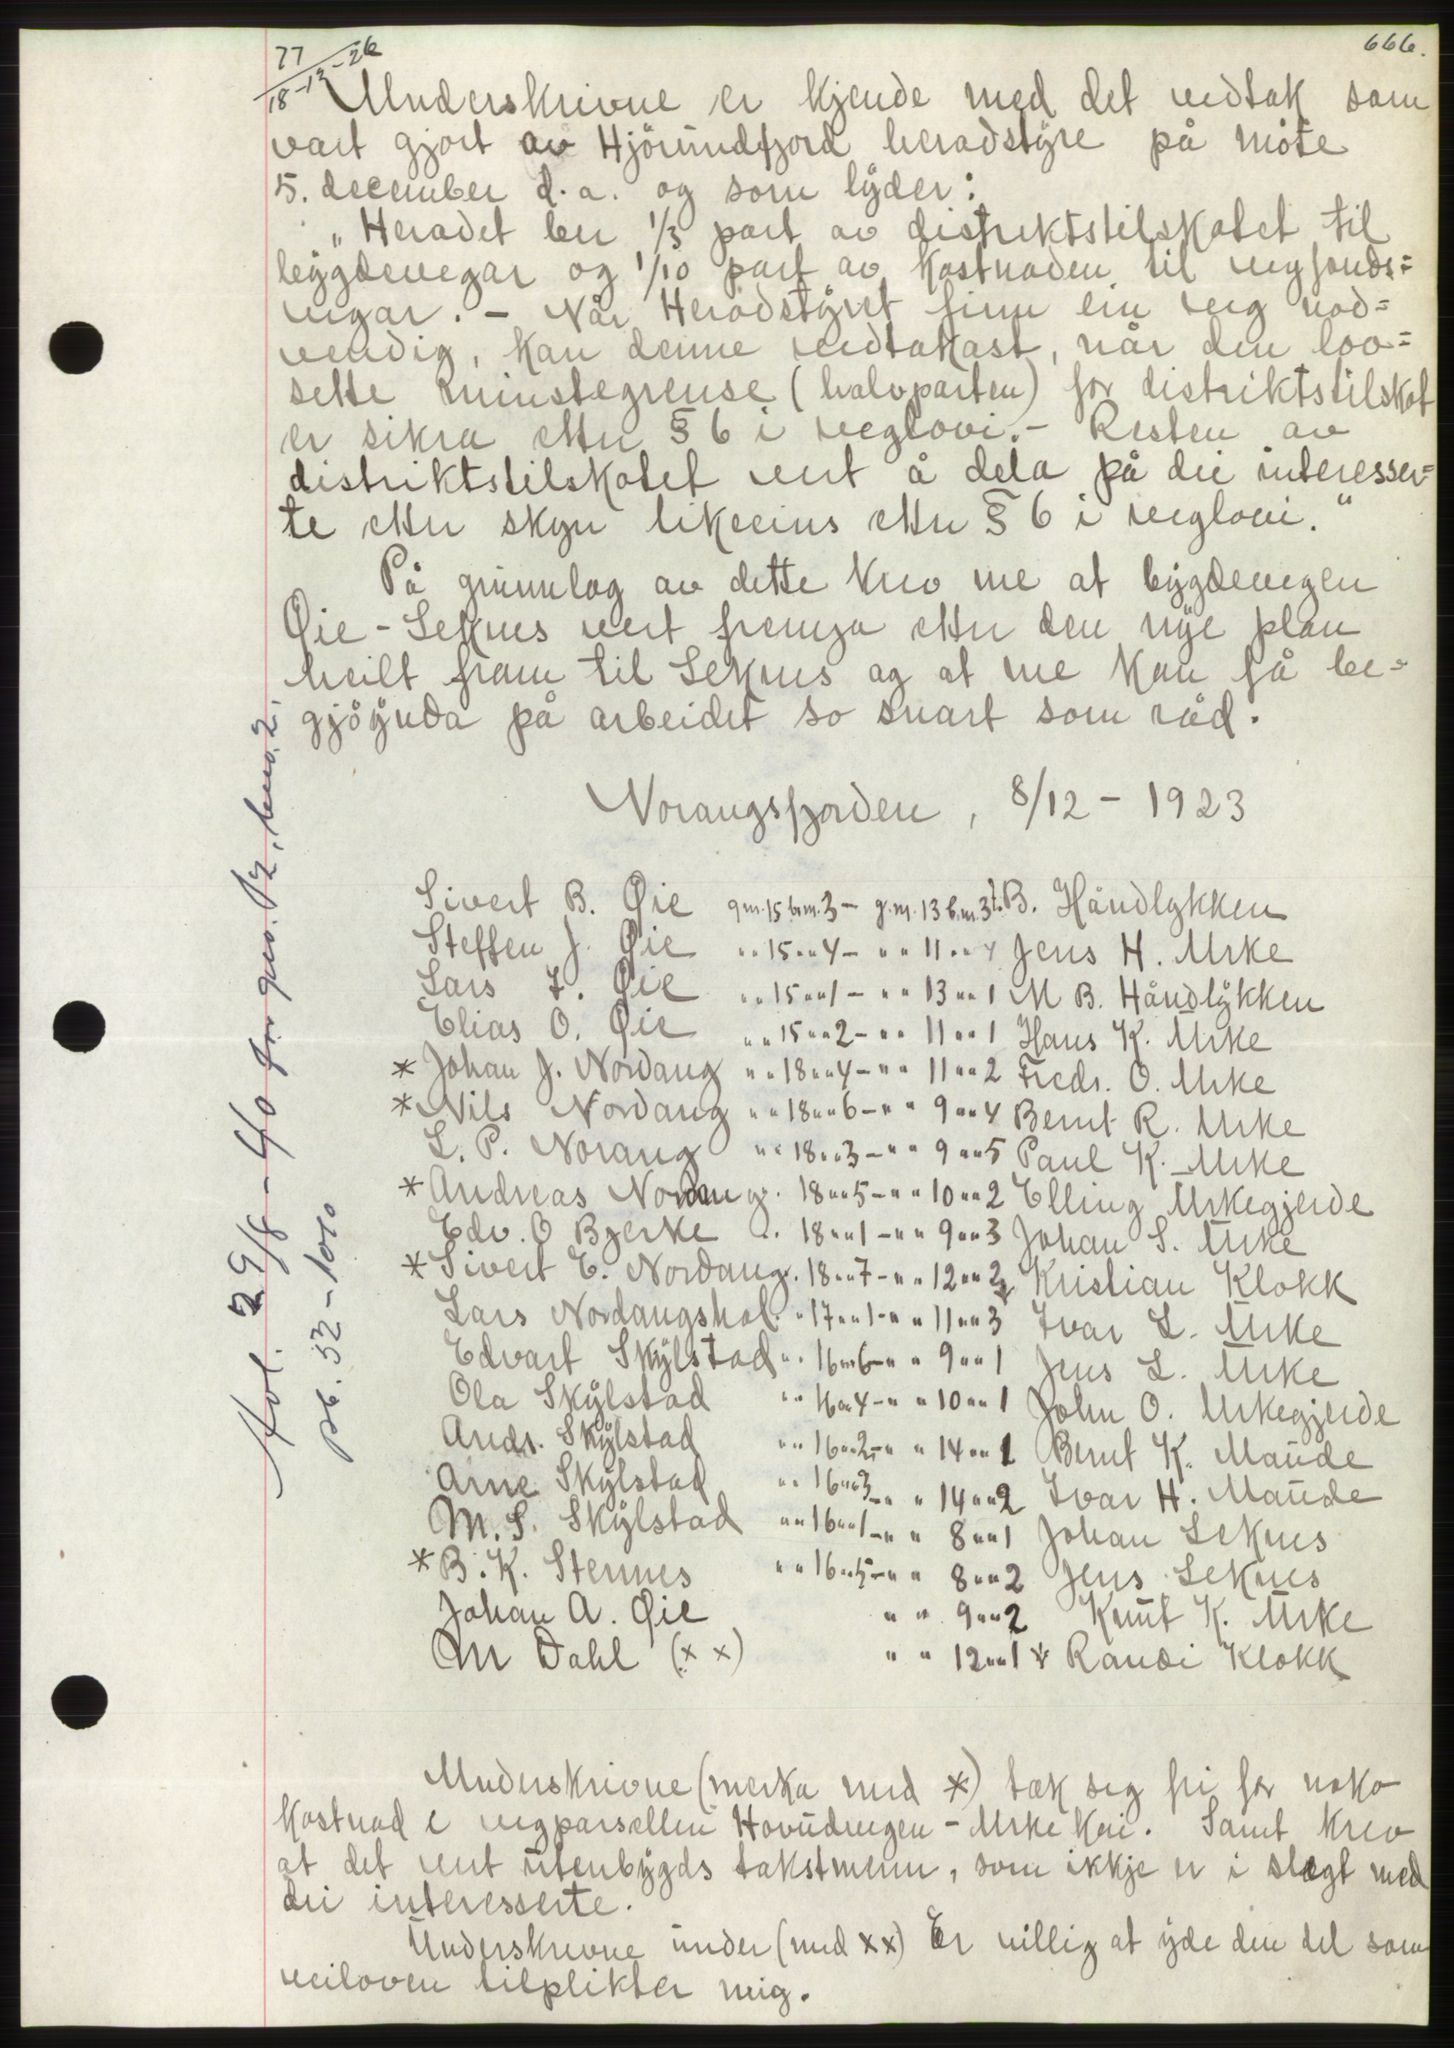 77
18-12-26
666.
Underskrivne er kjende med det vedtak som
vart gjort av Hjörundfjord heradstyre på möte
5. december d.a. og som lyder:
„Heradet ber 1/3 part av distriktstilskotet til
bygdevegar og 1/10 part av kostnaden til vegfonds=
vegar. - Når Heradstyret finn ein veg nöd=
vendig, kan denne vedtakast, når den lov=
sette minstegrense (halvparten) for distriktstilskot
er sikra etter § 6 i veglovi. - Resten av
distriktstilskotet vert å dela på dei interesser=
te etter skyn likeeins etter § 6 i veglovi."
På grunnlag av dette krev me at bygdevegen
Øie - Leknes vert fremja etter den nye plan
heilt fram til Leknes og at me kan få be=
gjöynda på arbeidet so snart som råd.
Norangsfjorden, 8/12 - 1923
Sivert B. Øie g.nr. 15 br.nr. 3 - g.nr. 13 b.nr. 3 t. B. Håndlykken
Steffen J. Øie " " 15 " " 4 - " " 11 " " 4 Jens H. Urke
Lars T. Øie " " 15 " " 1 - " " 13 " " 1 M B. Håndlykken
Elias O. Øie " " 15 " " 2 - " " 11 " " 1 Hans K. Urke
* Johan J. Nordang " " 18 " " 4 - " " 11 " " 2 Fredr. O. Urke
* Nils Nordang " " 18 " " 6 - " " 9 " " 4 Bernt R. Urke
L. P. Norang " " 18 " " 3 - " " 9 " " 5 Paul K. Urke
* Andreas Nordang " 18 " " 5 - " " 10 " " 2 Elling Urkegjerde
Edv. O Bjerke " 18 " " 1 - " " 9 " " 3 Johan S. Urke
* Sivert E. Nordang " 18 " " 7 - " " 12 " " 2 Kristian Klokk
Lars Nordangshol " 17 " " 1 - " " 11 " " 3 Ivar L. Urke
Edvart Skylstad " " 16 " " 6 - " " 9 " " 1 Jens L. Urke
Ola Skylstad " " 16 " " 4 - " " 10 " " 1 John O. Urkegjerde
Andr. Skylstad " " 16 " " 2 - " " 14 " " 1 Bernt K. Maude
Arne Skylstad " " 16 " " 3 - " " 14 " " 2 Ivar H. Maude
M. S. Skylstad " " 16 " " 1 - " " 8 " " 1 Johan Leknes
* B. K. Stennes " " 16 " " 5 - " " 8 " " 2 Jens Leknes
Johan A. Øie " " 9 " " 2 Knut K. Urke
M Dahl (x x) " " 12 " " 1 Randi Klokk
Underskrivne (merka med *) tek seg fri for noko
kostnad i vegparsellen Hovudvegen - Urke kai. Samt krev
at det vert utenbygds takstmenn, som ikkje er i slegt med
dei interesserte.
Underskrevne under (med xx) Er villig at yde den del som
veiloven tilplikter mig.
29/8 - 40 for gno. 12, bno. 2.